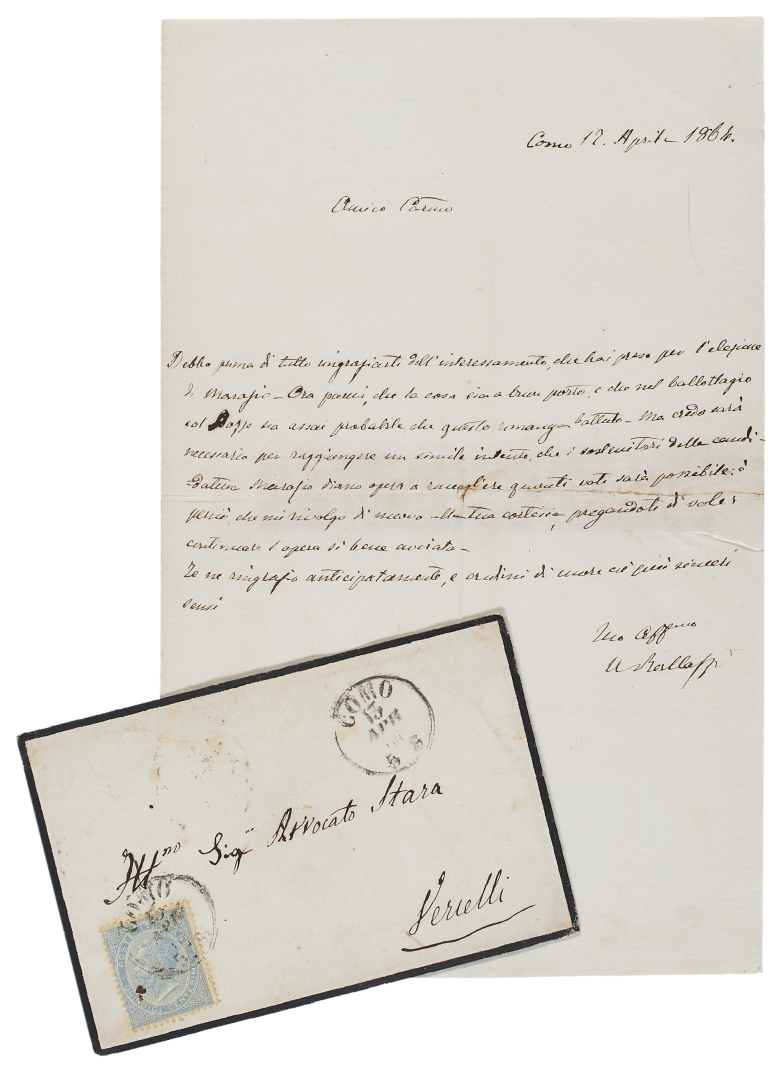 Como 12. Aprile 1864.
Amico Carmo
Debbo prima di tutto ringraziarti dell'interessamento, che hai preso per l'elezione
di Marazio - Ora parmi, che la cosa sia a buon porto, e che nel ballottagio
col sia assai probabile che questo rimanga battuto - Ma credo sarà
necessario per raggiungere un simile intento, che i sostenitori della candi-
datura Marazio diano opera a raccogliere quanti voti sarà possibile; è
perciò, che mi rivolgo di nuovo alla tua cortesia, pregandoti di voler
continuare l'opera sì bene avviata -
Te ne ringrazio anticipatamente, e credimi di cuore coi più sinceri
sensi
Tuo Affmo
COMO
13
APR
64
5 S
Illmo Sigr Avvocato Stara
Vercelli
COMO
13
APR
POSTE
QUINDICI CENTESIMI